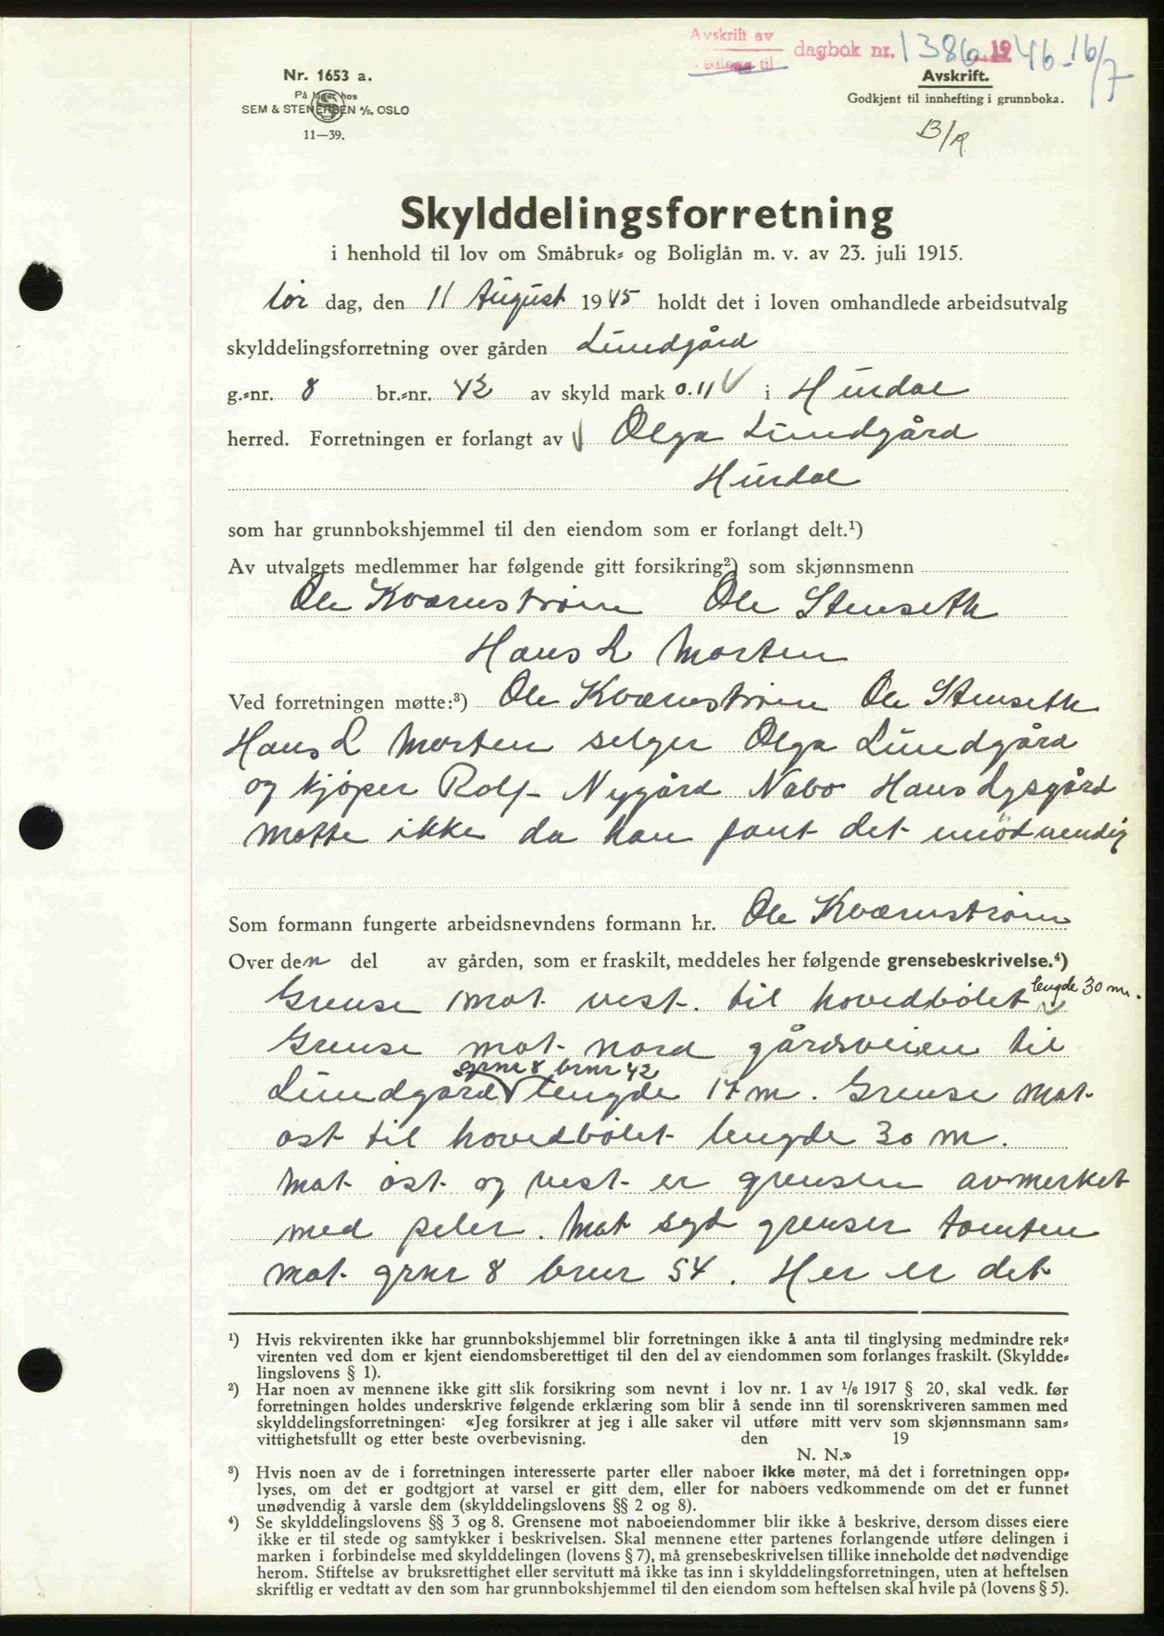 Avskrift av
dagbok nr. 1386 1946-16/7
Nr. 1653 a.
På lager hos
SEM & STENERSEN A/S, OSLO
11—39.
Avskrift.
Godkjent til innhefting i grunnboka.
B/R
Skylddelingsforretning
i henhold til lov om Småbruk- og Boliglån m. v. av 23. juli 1915.
lør dag, den 11 August 1945 holdt det i loven omhandlede arbeidsutvalg
skylddelingsforretning over gården Lundgård
g.-nr. 8 br.-nr. 42 av skyld mark 0.11 i Hurdal
herred. Forretningen er forlangt av Olga Lundgård
Hurdal
som har grunnbokshjemmel til den eiendom som er forlangt delt.¹)
Av utvalgets medlemmer har følgende gitt forsikring²) som skjønnsmenn
Ole Kværnstrøm Ole Stenseth
Hans L Morten
Ved forretningen møtte:³) Ole Kværnstrøm Ole Stenseth
Hans L Morten selger Olga Lundgård
og kjøper Rolf Nygård Nabo Hans Lysgård
møtte ikke da han fant det unødvendig
Som formann fungerte arbeidsnevndens formann hr. Ole Kværnstrøm
Over den del av gården, som er fraskilt, meddeles her følgende grensebeskrivelse.⁴)
Grense mot vest. til hovedbølet lengde 30 m.
Grense mot nord gårdsveien til
grnr 8 brnr 42
Lundgård lengde 17 m. Grense mot
øst til hovedbølet lengde 30 m.
Mot øst og vest er grensen avmerket
med peler. Mot syd grenser tomten
mot grnr 8 brnr 54. Her er det
¹) Hvis rekvirenten ikke har grunnbokshjemmel blir forretningen ikke å anta til tinglysing medmindre rek-
virenten ved dom er kjent eiendomsberettiget til den del av eiendommen som forlanges fraskilt. (Skyldde-
lingslovens § 1).
²) Har noen av mennene ikke gitt slik forsikring som nevnt i lov nr. 1 av 1/6 1917 § 20, skal vedk. før
forretningen holdes underskrive følgende erklæring som blir å sende inn til sorenskriveren sammen med
skylddelingsforretningen: «Jeg forsikrer at jeg i alle saker vil utføre mitt verv som skjønnsmann sam-
vittighetsfullt og etter beste overbevisning. den 19
N. N.»
³) Hvis noen av de i forretningen interesserte parter eller naboer ikke møter, må det i forretningen opp-
lyses, om det er godtgjort at varsel er gitt dem, eller for naboers vedkommende om det er funnet
unødvendig å varsle dem (skylddelingslovens §§ 2 og 8).
⁴) Se skylddelingslovens §§ 3 og 8. Grensene mot naboeiendommer blir ikke å beskrive, dersom disses eiere
ikke er til stede og samtykker i beskrivelsen. Skal mennene etter partenes forlangende utføre delingen i
marken i forbindelse med skylddelingen (lovens § 7), må grensebeskrivelsen tillike inneholde det nødvendige
herom. Stiftelse av bruksrettighet eller servitutt må ikke tas inn i skylddelingsforretningen, uten at heftelsen
skriftlig er vedtatt av den som har grunnbokshjemmel til den eiendom som heftelsen skal hvile på (lovens § 5).